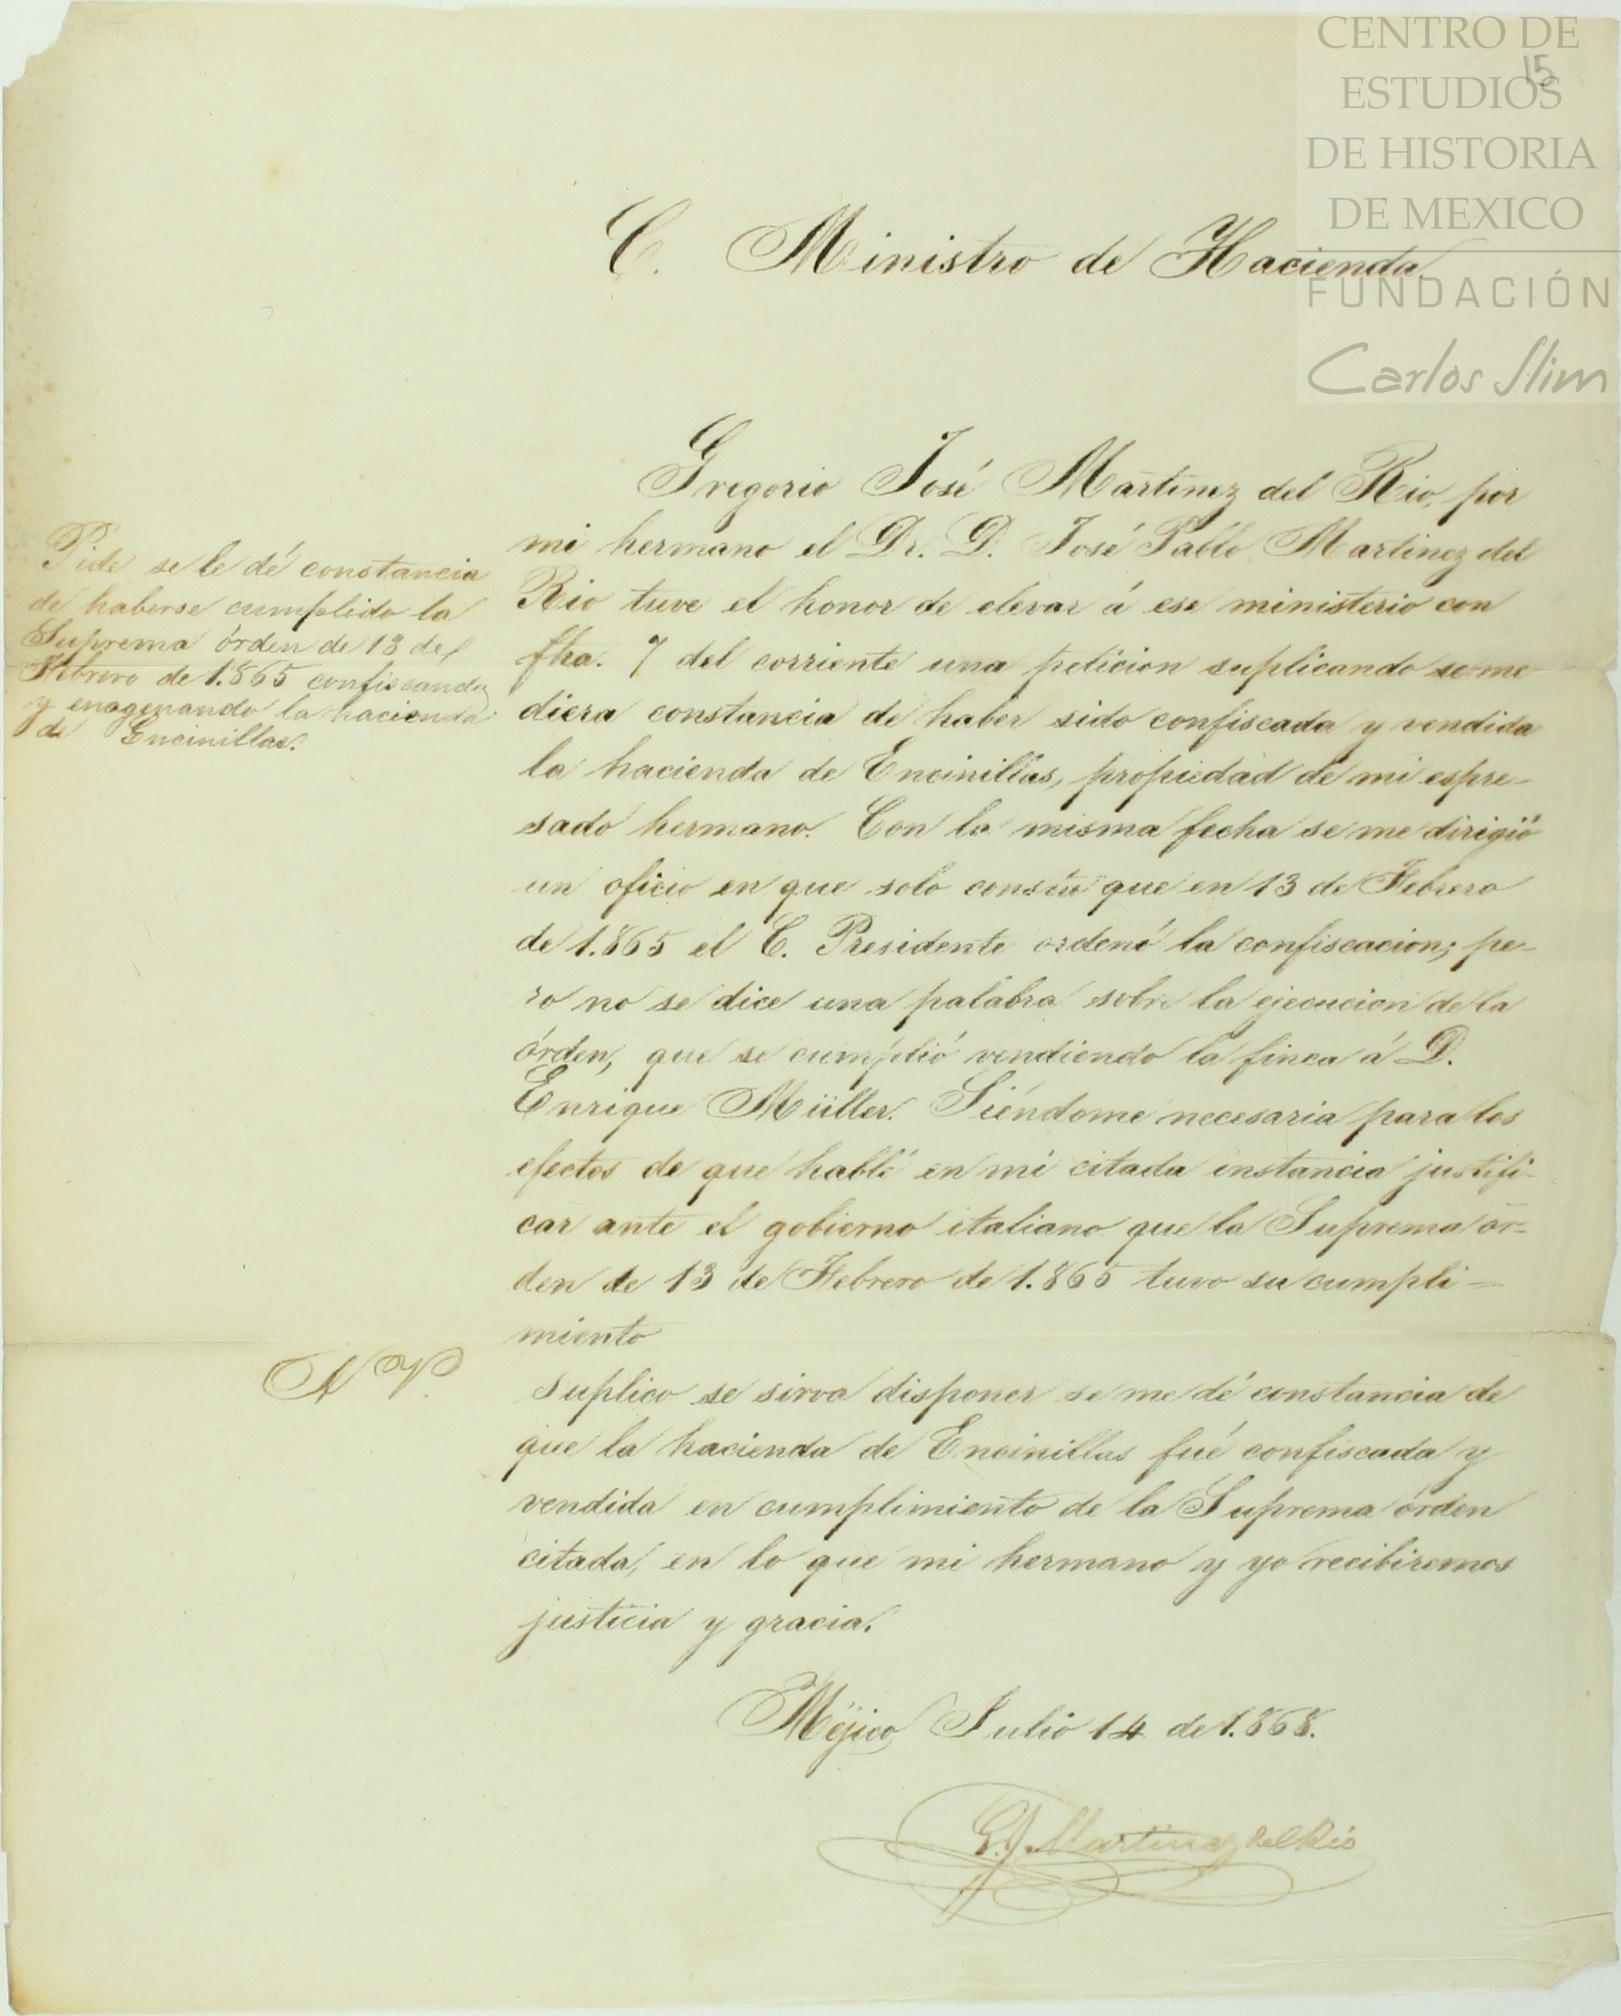 CENTRO DE
ESTUDIOS
DE HISTORIA
DE MEXICO
FUNDACIÓN
Carlos Slim
15
C. Ministro de Hacienda.
Gregorio José Martinez del Rio, por
mi hermano el Dr. D. José Pablo Martinez del
Rio tuve el honor de elevar á ese ministerio con
fha. 7 del corriente una peticion suplicando se me
diera constancia de haber sido confiscada y vendida
la hacienda de Encinillas, propiedad de mi espre-
sado hermano. Con la misma fecha se me dirigió
un oficio en que solo consta que en 13 de Febrero
de 1.865 el C. Presidente ordenó la confiscacion; pe-
ro no se dice una palabra sobre la ejecucion de la
órden, que se cumplió vendiendo la finca á D.
Enrique Müller. Siéndome necesaria para los
efectos de que hablé en mi citada instancia justifi-
car ante el gobierno italiano que la Suprema ór-
den de 13 de Febrero de 1.865 tuvo su cumpli-
miento
Pide se le dé constancia
de haberse cumplido la
Suprema órden de 13 de
Febrero de 1.865 confiscando
y enagenando la hacienda
de Encinillas.
A V.
suplico se sirva disponer se me dé constancia de
que la hacienda de Encinillas fué confiscada y
vendida en cumplimiento de la Suprema órden
citada, en lo que mi hermano y yo recibiremos
justicia y gracia.
Méjico Julio 14 de 1.868.
G. J. Martinez del Rio